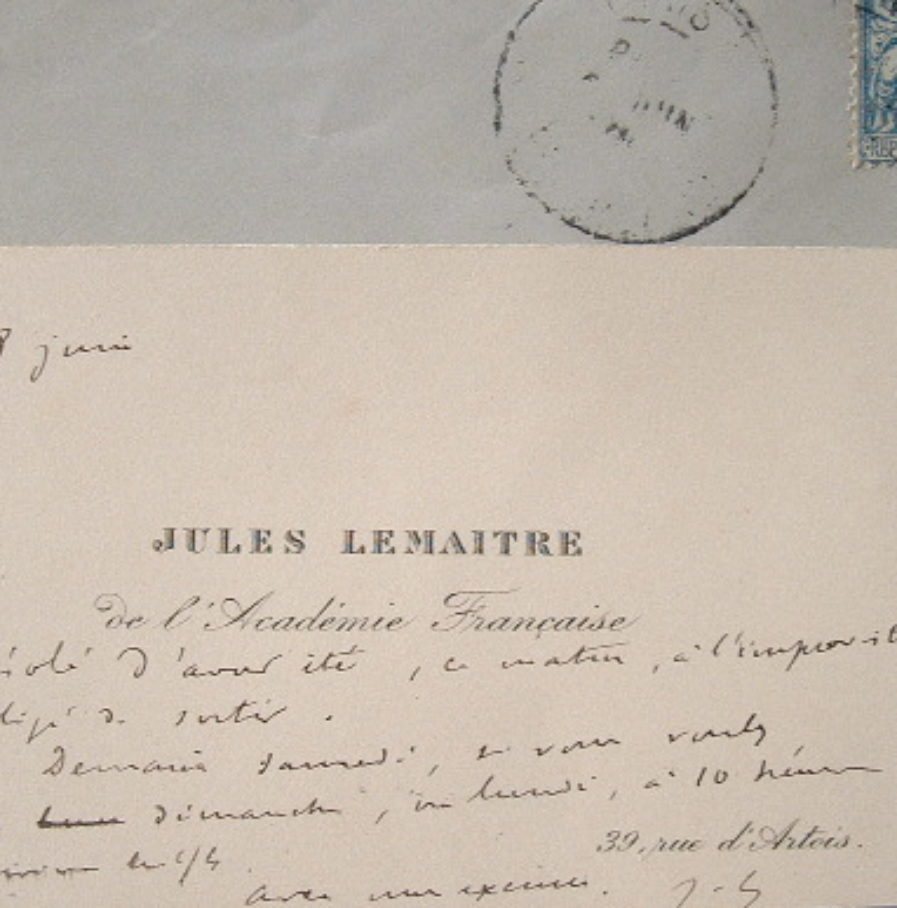 juin
JULES LEMAITRE
de l'Académie Française
d'avoir été, ce matin, à l'improvist
de sortir.
Demain samedi, si vous voulez
dimanche, ou lundi, à 10 heures
39, rue d'Artois.
avec mes excuses. J. L